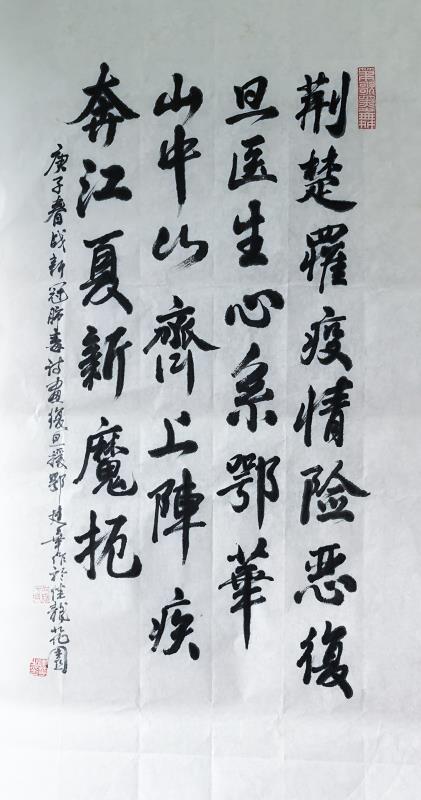 荆楚罹疫情险恶復
旦医生心系鄂華
山中山齊上陣疾
奔江夏新魔扼
庚子春战新冠肺毒復旦援鄂建華作於佳龍花園